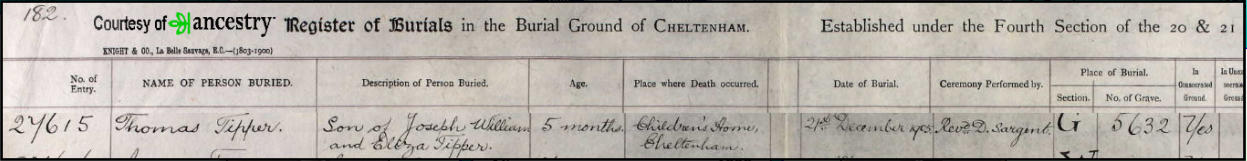 182.
Courtesy of ancestry Register of Burials in the Burial Ground of CHELTENHAM. Established under the Fourth Section of the 20 & 21
KNIGHT & CO., La Belle Sauvage, E.C.—(1803-1900)
No. of Entry. NAME OF PERSON BURIED. Description of Person Buried. Age. Place where Death occurred. Date of Burial. Ceremony Performed by. Place of Burial. In Consecrated Ground.
Section. No. of Grave.
27615 Thomas Tipper. Son of Joseph William 5 months. Children's Home, 21st December Revd. D. Sargent. G 5632 Yes
and Eliza Tipper. Cheltenham.